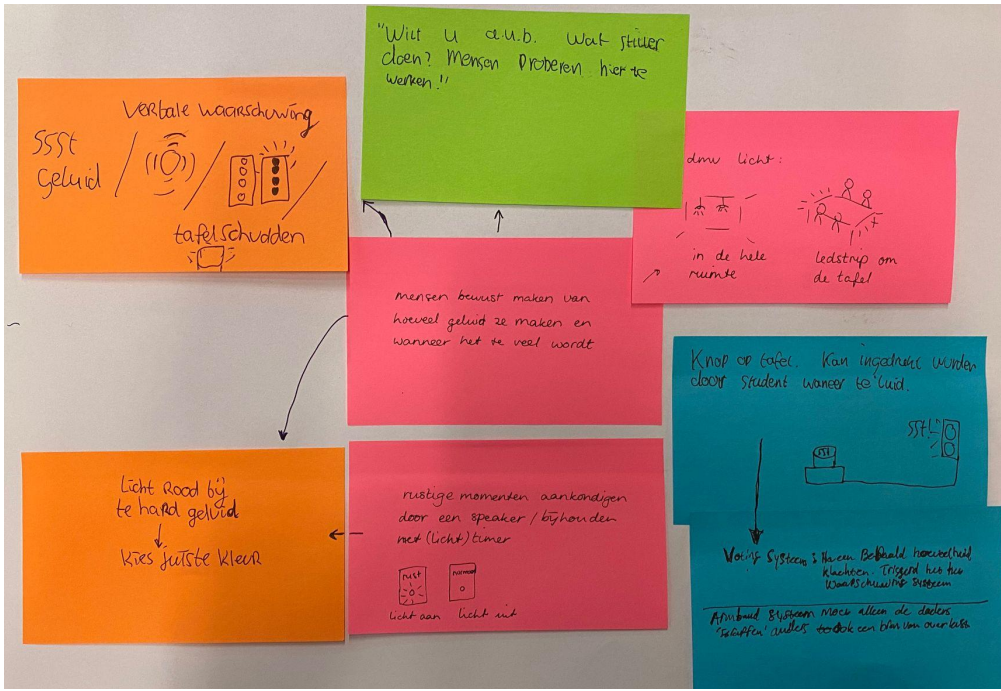 "Wilt u a.u.b. wat stiller
doen? Mensen proberen hier te
werken!"
Verbale waarschuwing
SSSt
geluid
tafelschudden
dmv licht:
in de hele
ruimte
ledstrip om
de tafel
mensen bewust maken van
hoeveel geluid ze maken en
wanneer het te veel wordt
Knop op tafel. Kan ingedrukt worden
door student waneer te luid.
SSt!
Licht Rood bij
te hard geluid
Kies juiste kleur
rustige momenten aankondigen
door een speaker / bijhouden
met (licht) timer
rust
normaal
licht aan licht uit
Voting Systeem: Na een Bepaald hoeveelheid
klachten. Triggerd het het
Waarschuwing systeem
Armband systeem moet alleen de daders
'straffen' anders ook een bron van overlast